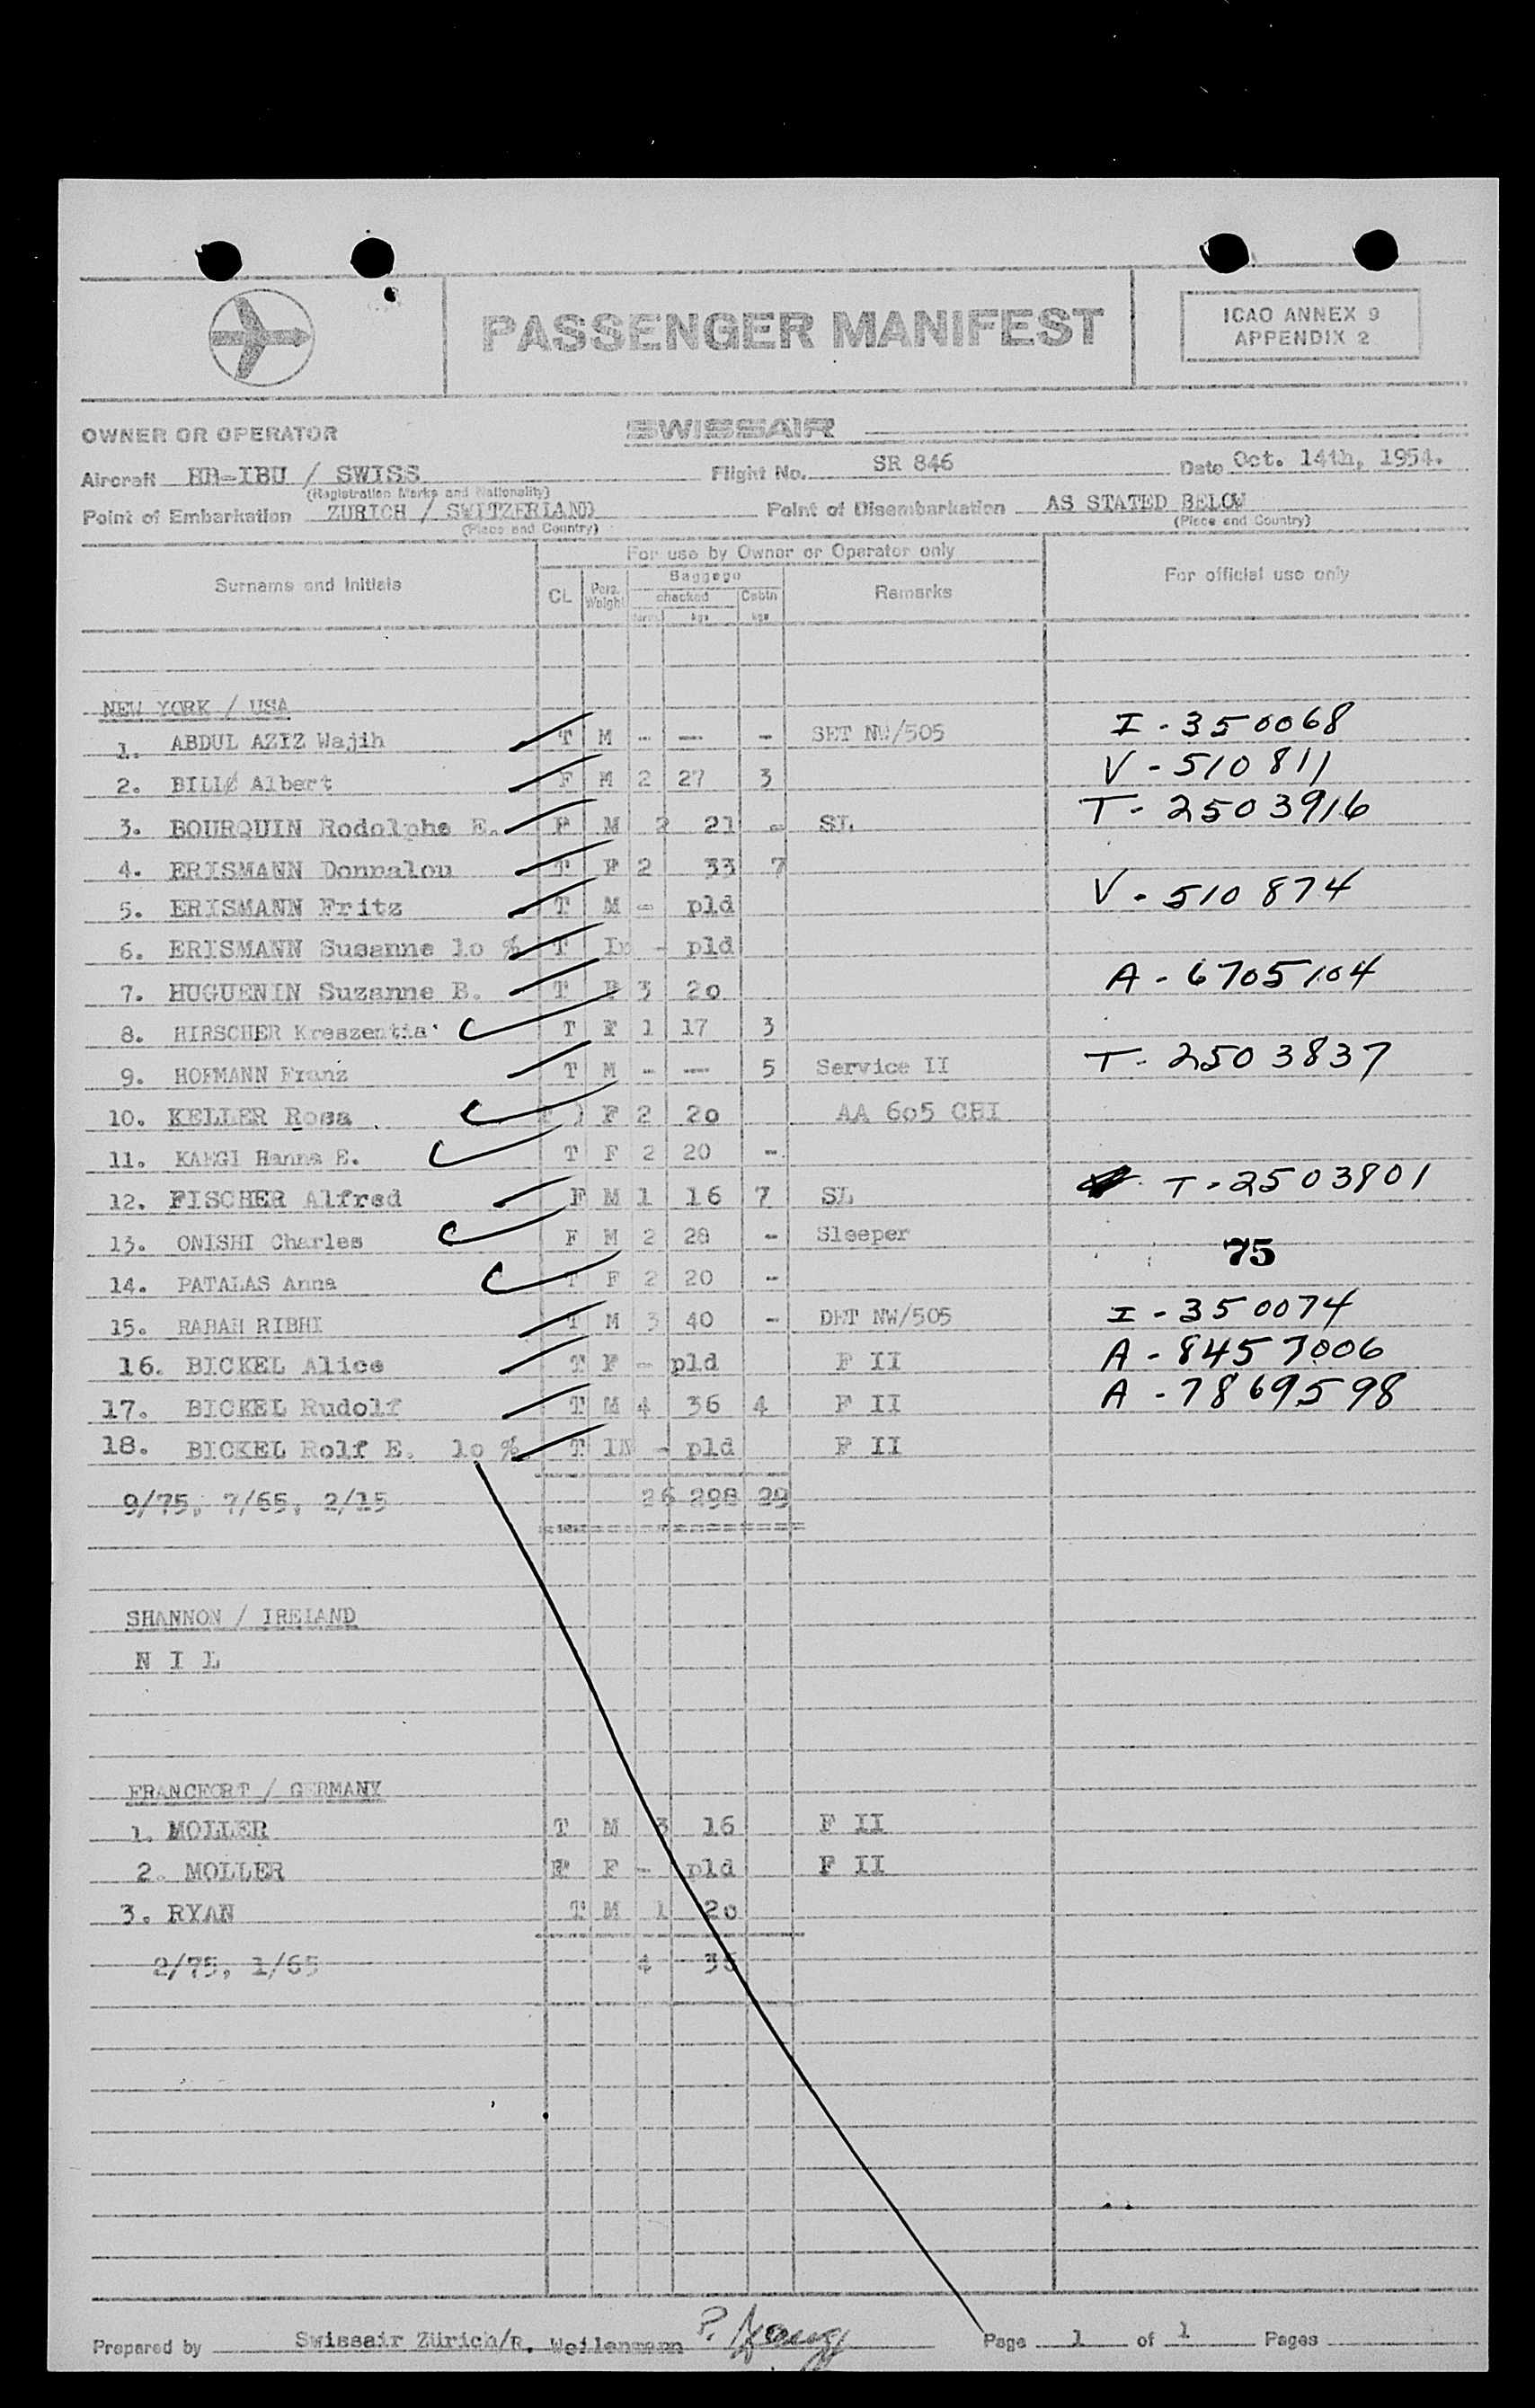 PASSENGER MANIFEST
ICAO ANNEX 9
APPENDIX 2
OWNER OR OPERATOR SWISSAIR
Aircraft HB-IBU / SWISS Flight No. SR 846 Date Oct. 14th, 1954.
(Registration Marks and Nationality)
Point of Embarkation ZURICH / SWITZERLAND Point of Disembarkation AS STATED BELOW
(Place and Country) (Place and Country)
For use by Owner or Operator only
Surname and Initials CL Pers. Weight Baggage checked kgs Cabin kgs Remarks For official use only
NEW YORK / USA
1. ABDUL AZIZ Wajih T M - -- - SET NW/505 I - 350068
2. BILLE Albert F M 2 27 3 V - 510811
3. BOURQUIN Rodolphe E. F M 2 21 - SL T - 2503916
4. ERISMANN Donnalou T F 2 33 7
5. ERISMANN Fritz T M - pld V - 510874
6. ERISMANN Susanne lo % T IN - pld
7. HUGUENIN Suzanne B. T F 3 2o A - 6705104
8. HIRSCHER Kreszentia T F 1 17 3
9. HOFMANN Franz T M - -- 5 Service II T - 2503837
10. KELLER Rosa T ) F 2 2o AA 6o5 CHI
11. KAEGI Hanna E. T F 2 20 -
12. FISCHER Alfred F M 1 16 7 SL T - 2503801
13. ONISHI Charles F M 2 28 - Sleeper
75
14. PATALAS Anna T F 2 20 -
15. RABAH RIBHI T M 3 40 - DET NW/505 I - 350074
16. BICKEL Alice T F - pld F II A - 8457006
17. BICKEL Rudolf T M 4 36 4 F II A - 7869598
18. BICKEL Rolf E. lo % T IN - pld F II
9/75, 7/65, 2/15 26 298 29
SHANNON / IRELAND
N I L
FRANCFORT / GERMANY
1. MOLLER T M 3 16 F II
2. MOLLER F - pld F II
3. RYAN T M 1 2o
2/75, 1/65 4 36
Prepared by Swissair Zürich/R. Weilenmann P. Page 1 of 1 Pages